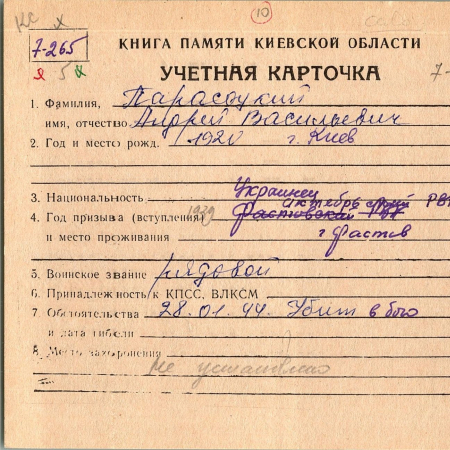 КС Х
10
7-265
я 5 х
КНИГА ПАМЯТИ КИЕВСКОЙ ОБЛАСТИ
УЧЕТНАЯ КАРТОЧКА
7-
1. Фамилия, Парасоцкий
имя, отчество Андрей Васильевич
2. Год и место рожд. 1920 г. Киев
3. Национальность Украинец
октябрь РВК
4. Год призыва (вступления) 1939 Фастовский РВК
и место проживания г Фастов
5. Воинское звание рядовой
6. Принадлежность к КПСС, ВЛКСМ
7. Обстоятельства 28.01.44. Убит в бою
и дата гибели
8. Место захоронения
не установлено